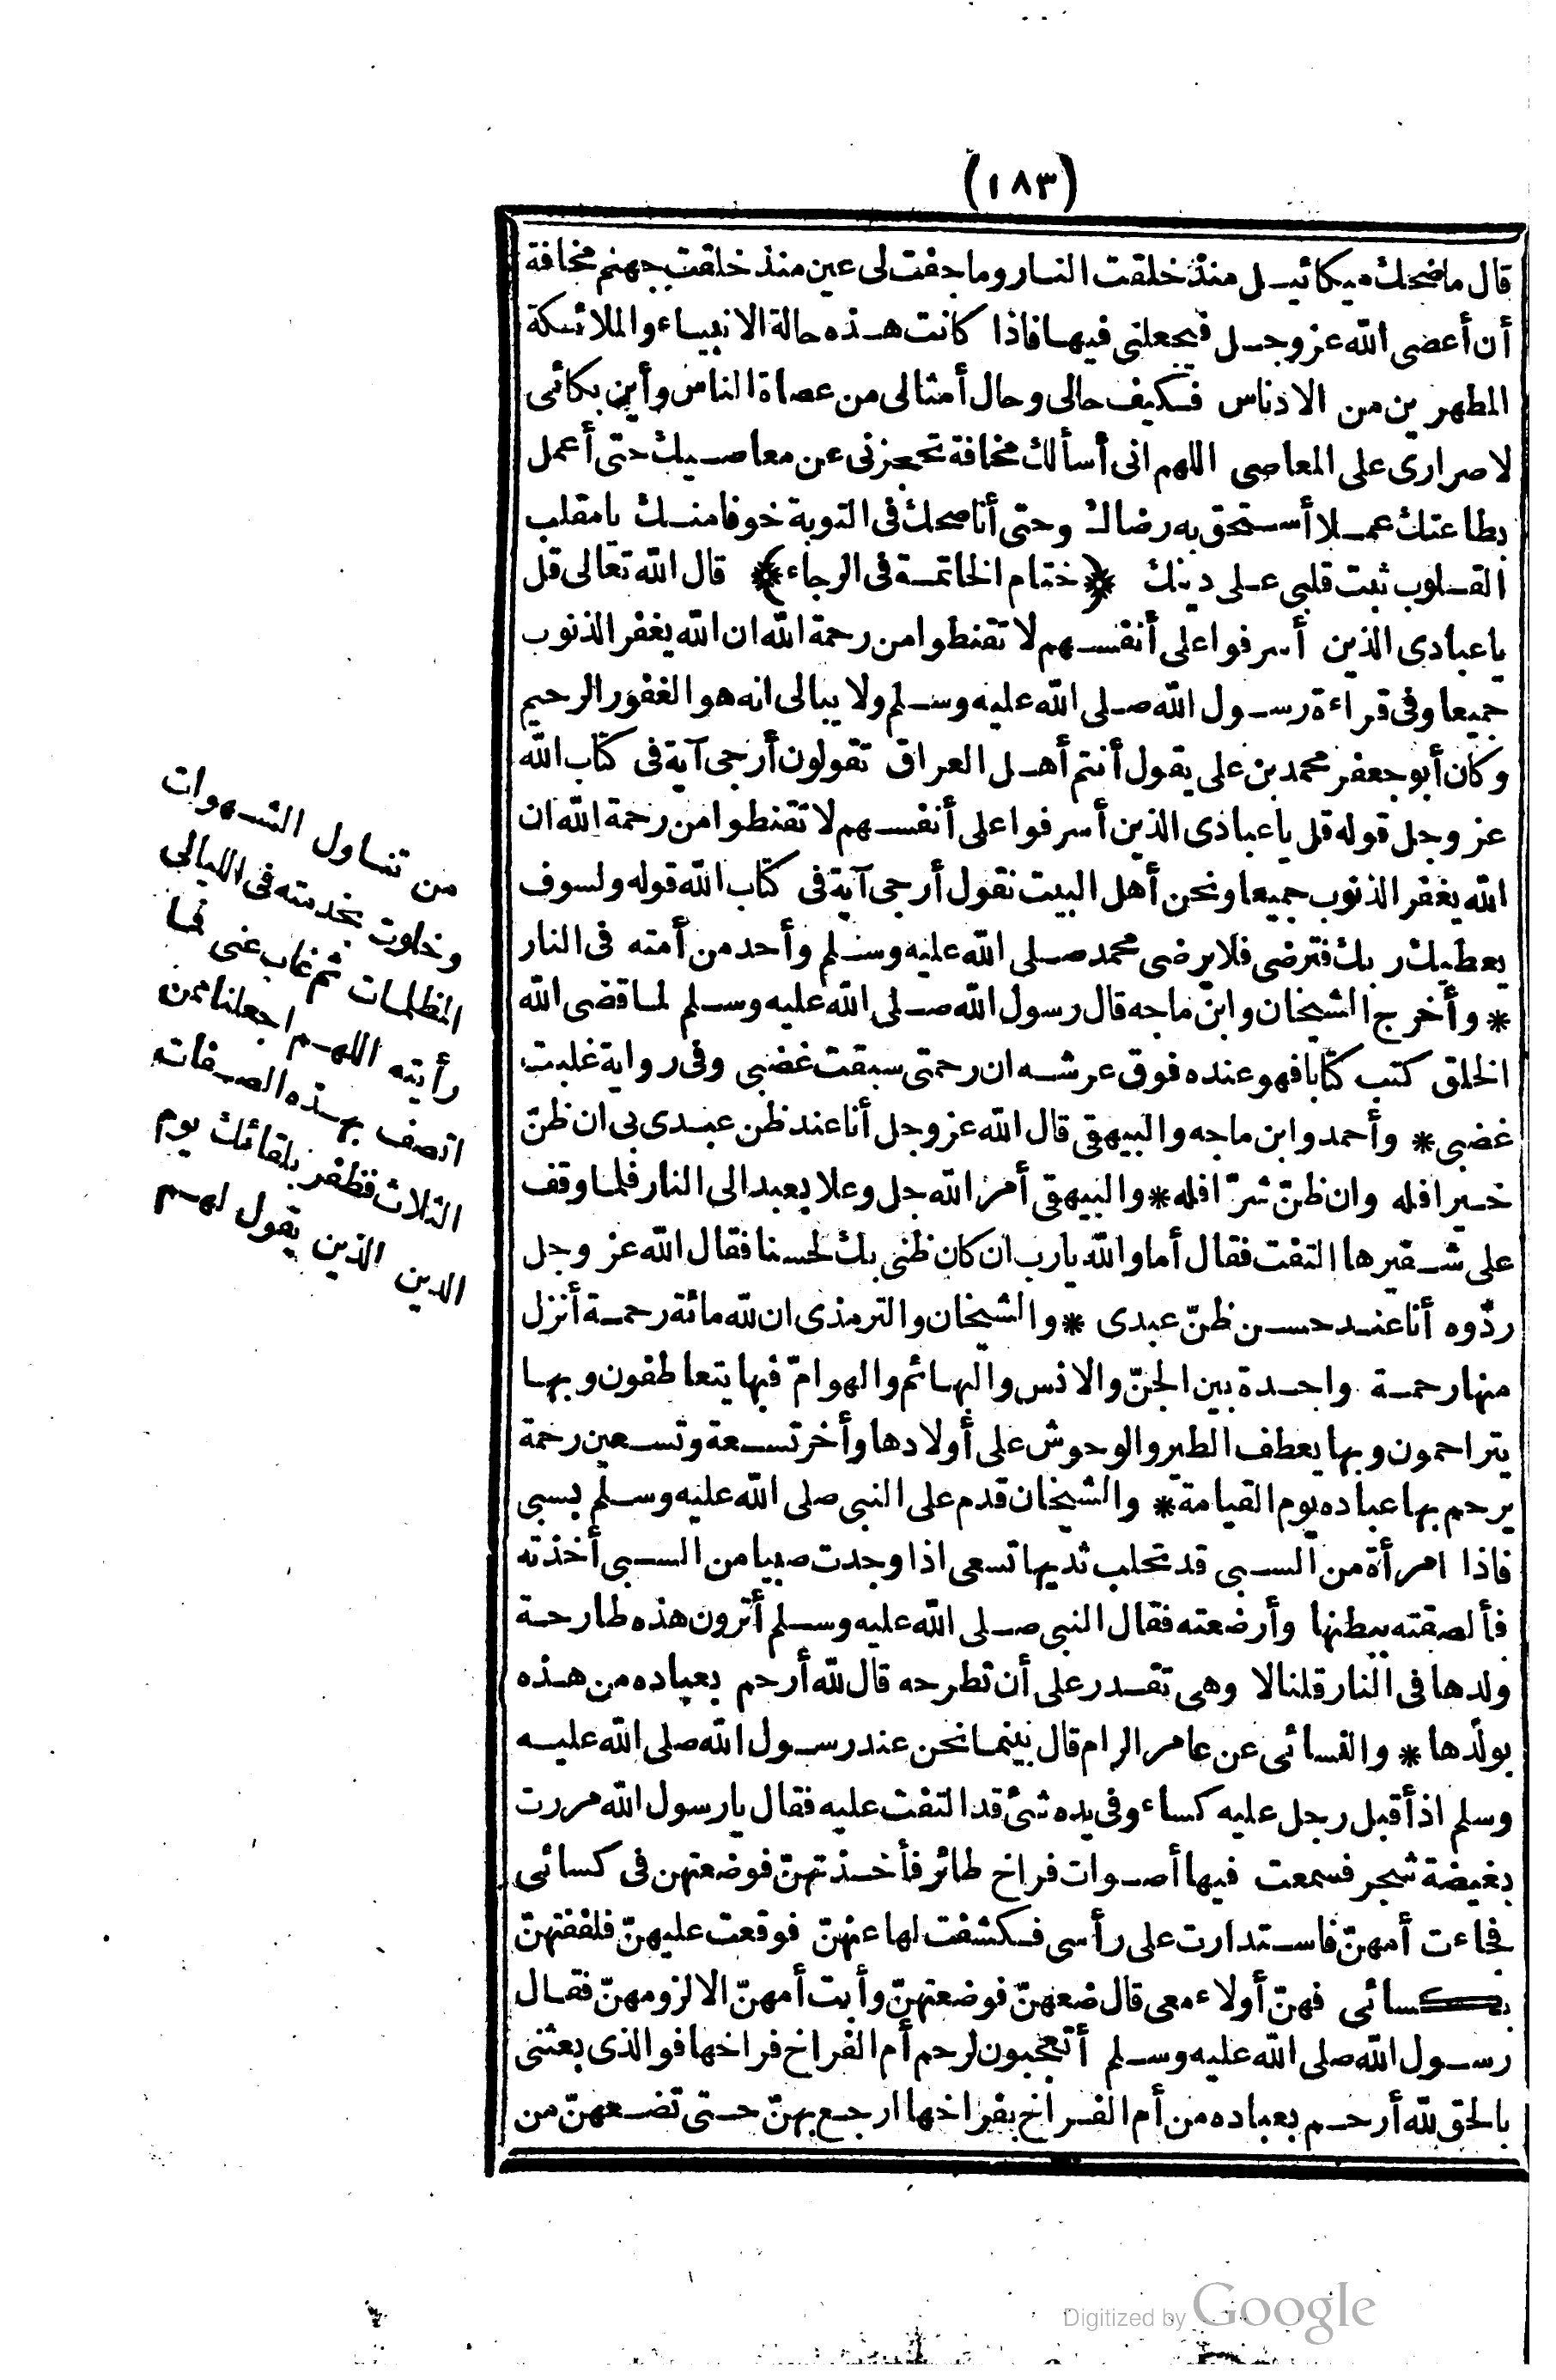 (١٨٣)
قال ماضحك ميكائيل منذ خلقت النار وما جفت لى عين منذ خلقت جهنم مخافة
أن أعصى الله عز وجل فيجعلنى فيها فاذا كانت هذه حالة الانبياء والملائكة
المطهرين من الادناس فكيف حالى وحال أمثالى من عصاة الناس وأين بكائى
لاصرارى على المعاصى اللهم انى أسألك مخافة تحجزنى عن معاصيك حتى أعمل
بطاعتك عملا أستحق به رضاك وحتى أناصحك فى التوبة خوفا منك يا مقلب
القلوب ثبت قلبى على دينك ﴿* ختام الخاتمة فى الرجاء *﴾ قال الله تعالى قل
يا عبادى الذين أسرفوا على أنفسهم لا تقنطوا من رحمة الله ان الله يغفر الذنوب
جميعا وفى قراءة رسول الله صلى الله عليه وسلم ولا يبالى انه هو الغفور الرحيم
وكان أبو جعفر محمد بن على يقول أنتم أهل العراق تقولون أرجى آية فى كتاب الله
عز وجل قوله قل يا عبادى الذين أسرفوا على أنفسهم لا تقنطوا من رحمة الله ان
الله يغفر الذنوب جميعا ونحن أهل البيت نقول أرجى آية فى كتاب الله قوله ولسوف
يعطيك ربك فترضى فلا يرضى محمد صلى الله عليه وسلم وأحد من أمته فى النار
* وأخرج الشيخان وابن ماجه قال رسول الله صلى الله عليه وسلم لما قضى الله
الخلق كتب كتابا فهو عنده فوق عرشه ان رحمتى سبقت غضبى وفى رواية غلبت
غضبى * وأحمد وابن ماجه والبيهقى قال الله عز وجل أنا عند ظن عبدى بى ان ظنّ
خيرا فله وان ظنّ شرّا فله * والبيهقى أمر الله جل وعلا بعبد الى النار فلما وقف
على شفيرها التفت فقال أما والله يارب ان كان ظنى بك لحسنا فقال الله عز وجل
ردّوه أنا عند حسن ظنّ عبدى * والشيخان والترمذى ان لله مائة رحمة أنزل
منها رحمة واحدة بين الجنّ والانس والبهائم والهوامّ فبها يتعاطفون وبها
يتراحمون وبها يعطف الطير والوحوش على أولادها وأخر تسعة وتسعين رحمة
يرحم بها عباده يوم القيامة * والشيخان قدم على النبى صلى الله عليه وسلم بسبى
فاذا امرأة من السبى قد تحلب ثديها تسعى اذا وجدت صبيا من السبى أخذته
فألصقته ببطنها وأرضعته فقال النبى صلى الله عليه وسلم أترون هذه طارحة
ولدها فى النار قلنا لا وهى تقدر على أن تطرحه قال لله أرحم بعباده من هذه
بولدها * والنسائى عن عامر الرام قال بينما نحن عند رسول الله صلى الله عليه
وسلم اذ أقبل رجل عليه كساء وفى يده شئ قد التفت عليه فقال يا رسول الله مررت
بغيضة شجر فسمعت فيها أصوات فراخ طائر فأخذتهنّ فوضعتهن فى كسائى
فجاءت أمهنّ فاستدارت على رأسى فكشفت لها عنهنّ فوقعت عليهنّ فلففتهنّ
بكسائى فهنّ أولاء معى قال ضعهنّ فوضعتهنّ وأبت أمهنّ الا لزومهنّ فقال
رسول الله صلى الله عليه وسلم أتعجبون لرحم أم الفراخ فراخها فوالذى بعثنى
بالحق لله أرحم بعباده من أم الفراخ بفراخها ارجع بهنّ حتى تضعهنّ من
من تناول الشهوات
وخلوت بخدمته فى الليالى
المظلمات ثم غاب عنى فما
رأيته اللهم اجعلنا ممن
اتصف بهذه الصفات
الثلاث فظفر بلقائك يوم
الدين الذين يقول لهم
Digitized by Google